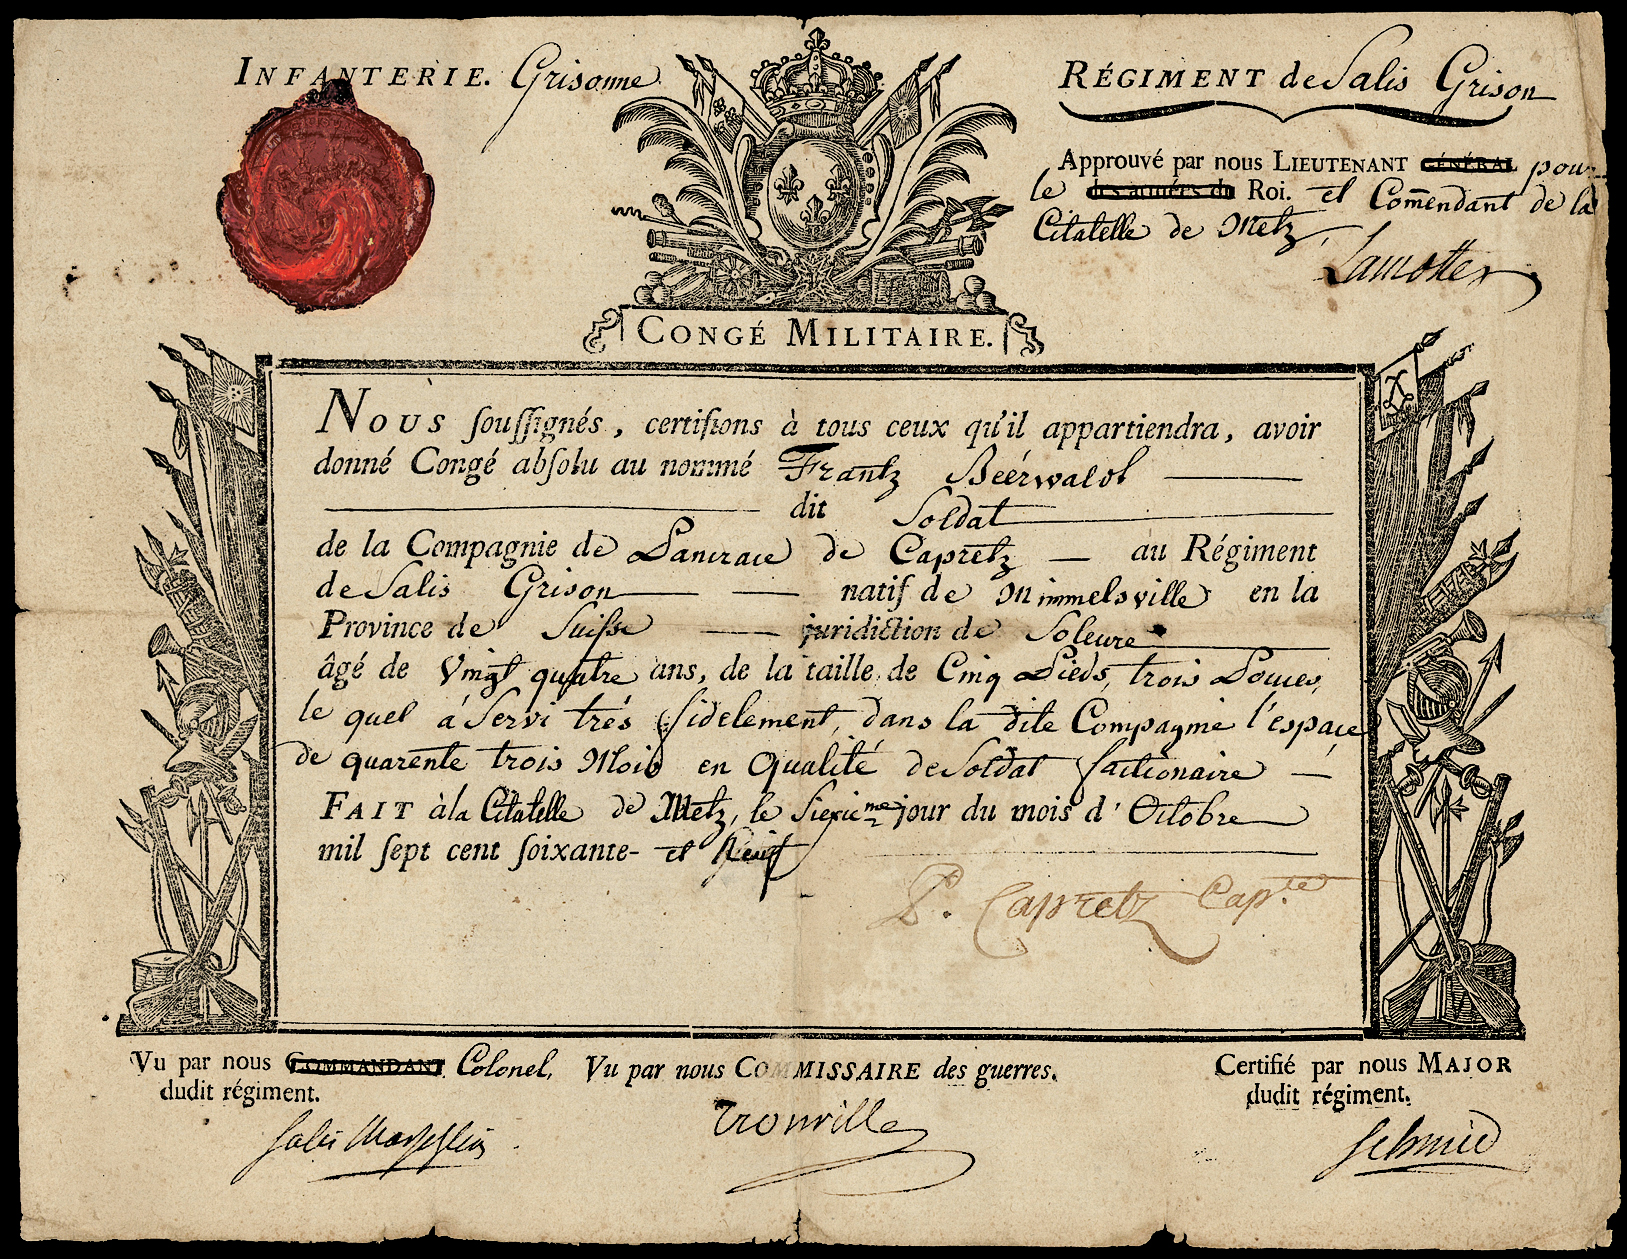 INFANTERIE. Grisonne
RÉGIMENT de Salis Grison
Approuvé par nous LIEUTENANT GÉNÉRAL pour
le des armées du Roi. et Com̃endant de la
Citatelle de Metz,
Lamotte
CONGÉ MILITAIRE.
NOUS ſouſſignés, certifions à tous ceux qu'il appartiendra, avoir
donné Congé abſolu au nommé Frantz Béérwald
dit Soldat
de la Compagnie de Pancrace de Capretz au Régiment
de Salis Grison natif de Himmelsville en la
Province de Suiſse juridiction de Soleure
âgé de Vingt quatre ans, de la taille de Cinq Pieds, trois Pouces,
le quel á Servi trés fidelement, dans la dite Compagnie l'espace
de quarente trois Mois en Qualité de Soldat factionaire
FAIT à la Citatelle de Metz, le Sixieme jour du mois d'Octobre
mil ſept cent ſoixante- et Neuf
P. Capretz Cap.te
Vu par nous COMMANDANT Colonel,
dudit régiment.
Vu par nous COMMISSAIRE des guerres.
Certifié par nous MAJOR
dudit régiment.
Salis Marschlin
Tronville
Schmid